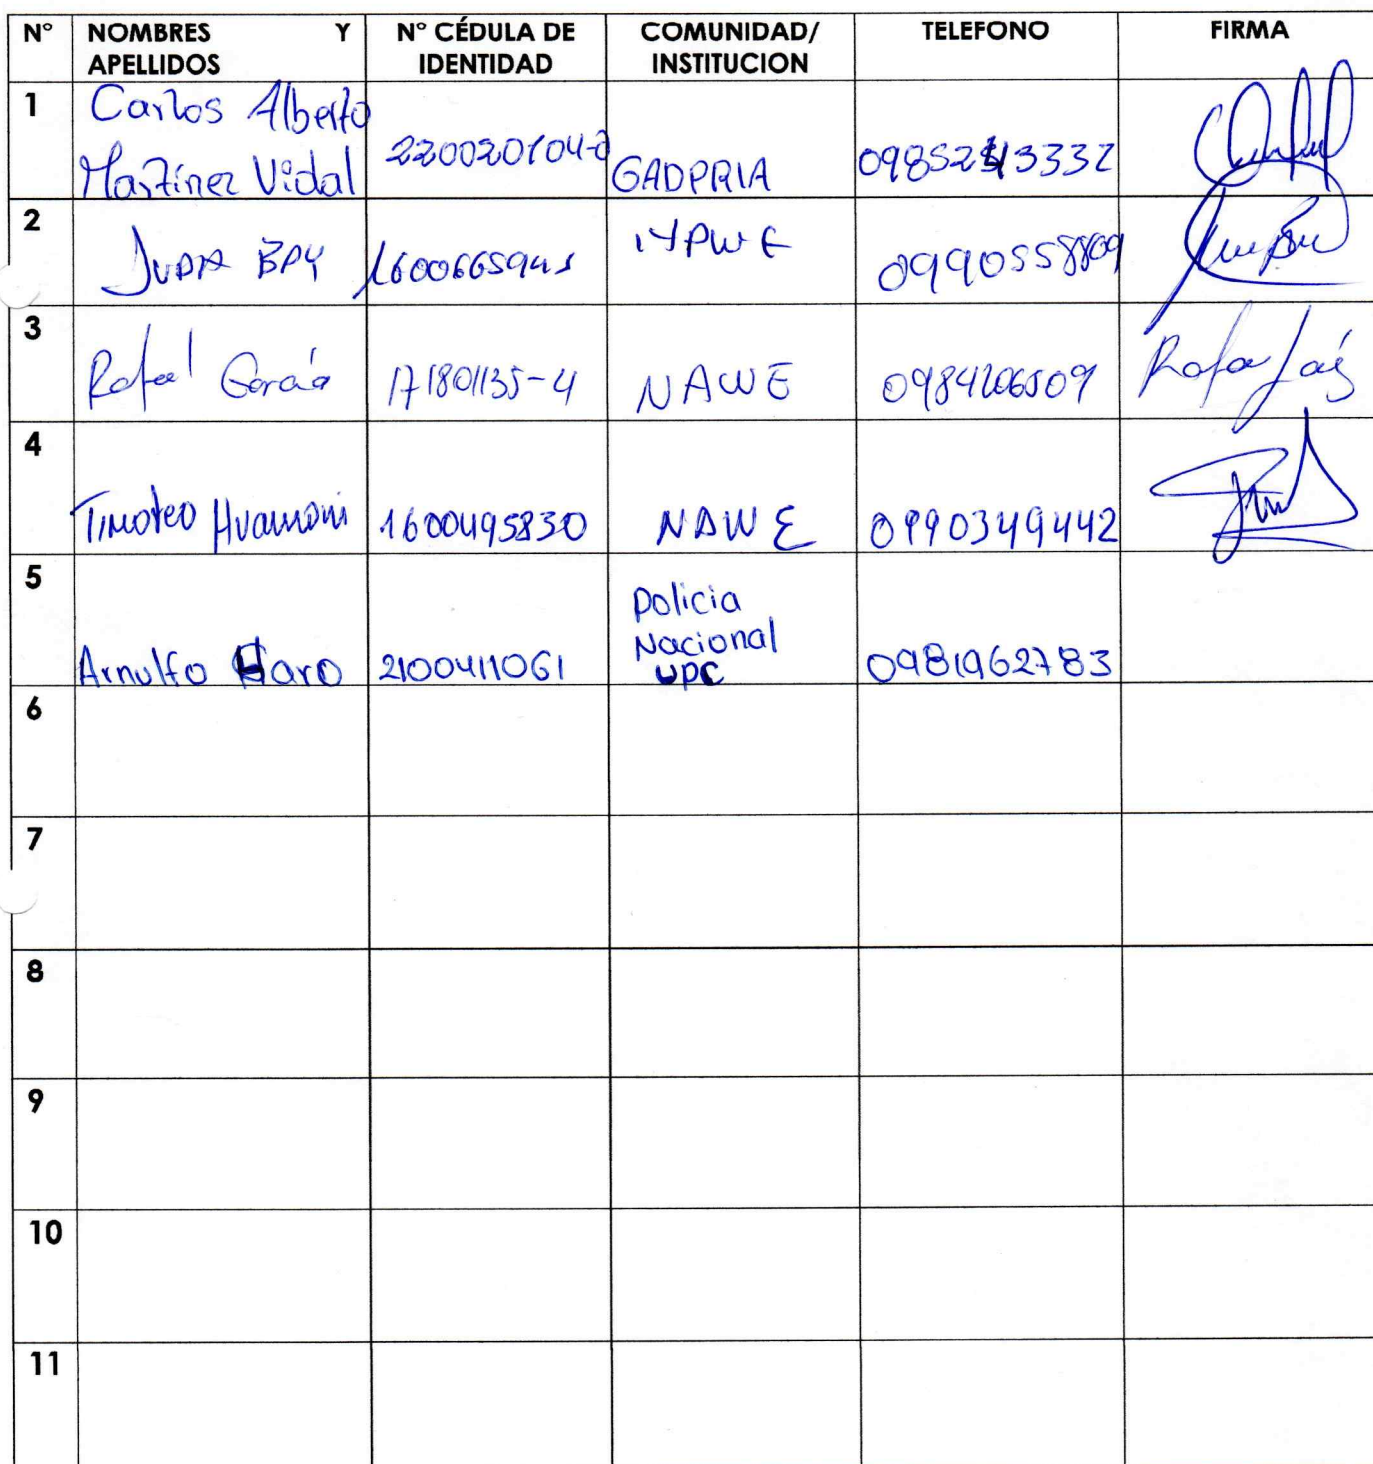 N° NOMBRES Y APELLIDOS N° CÉDULA DE IDENTIDAD COMUNIDAD/ INSTITUCION TELEFONO FIRMA
1 Carlos Alberto
Martínez Vidal 220020104-0 GADPRIA 0985243332
2 JUDA BAY 1600665941 0990558809
3 Rafael García 171801135-4 NAWE 0984206509
4 Timoteo Huamoni 1600495830 NAWE 0990349442
5 Arnulfo Haro 2100411061 Policia
Nacional
UPC 0981962783
6
7
8
9
10
11